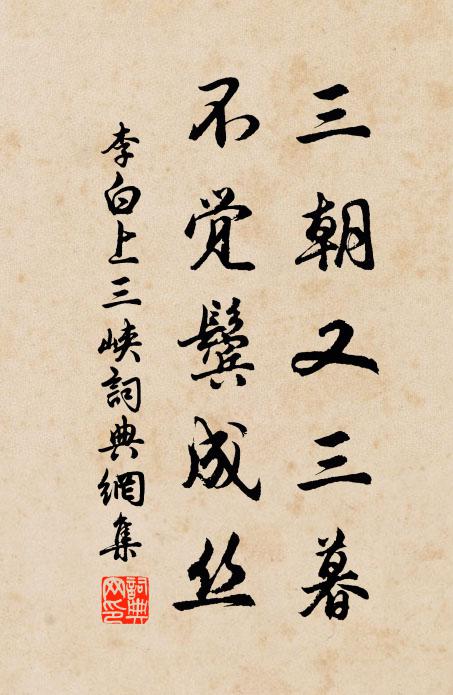 三朝又三暮
不觉鬓成丝
李白上三峡詞典網集
詞典网印